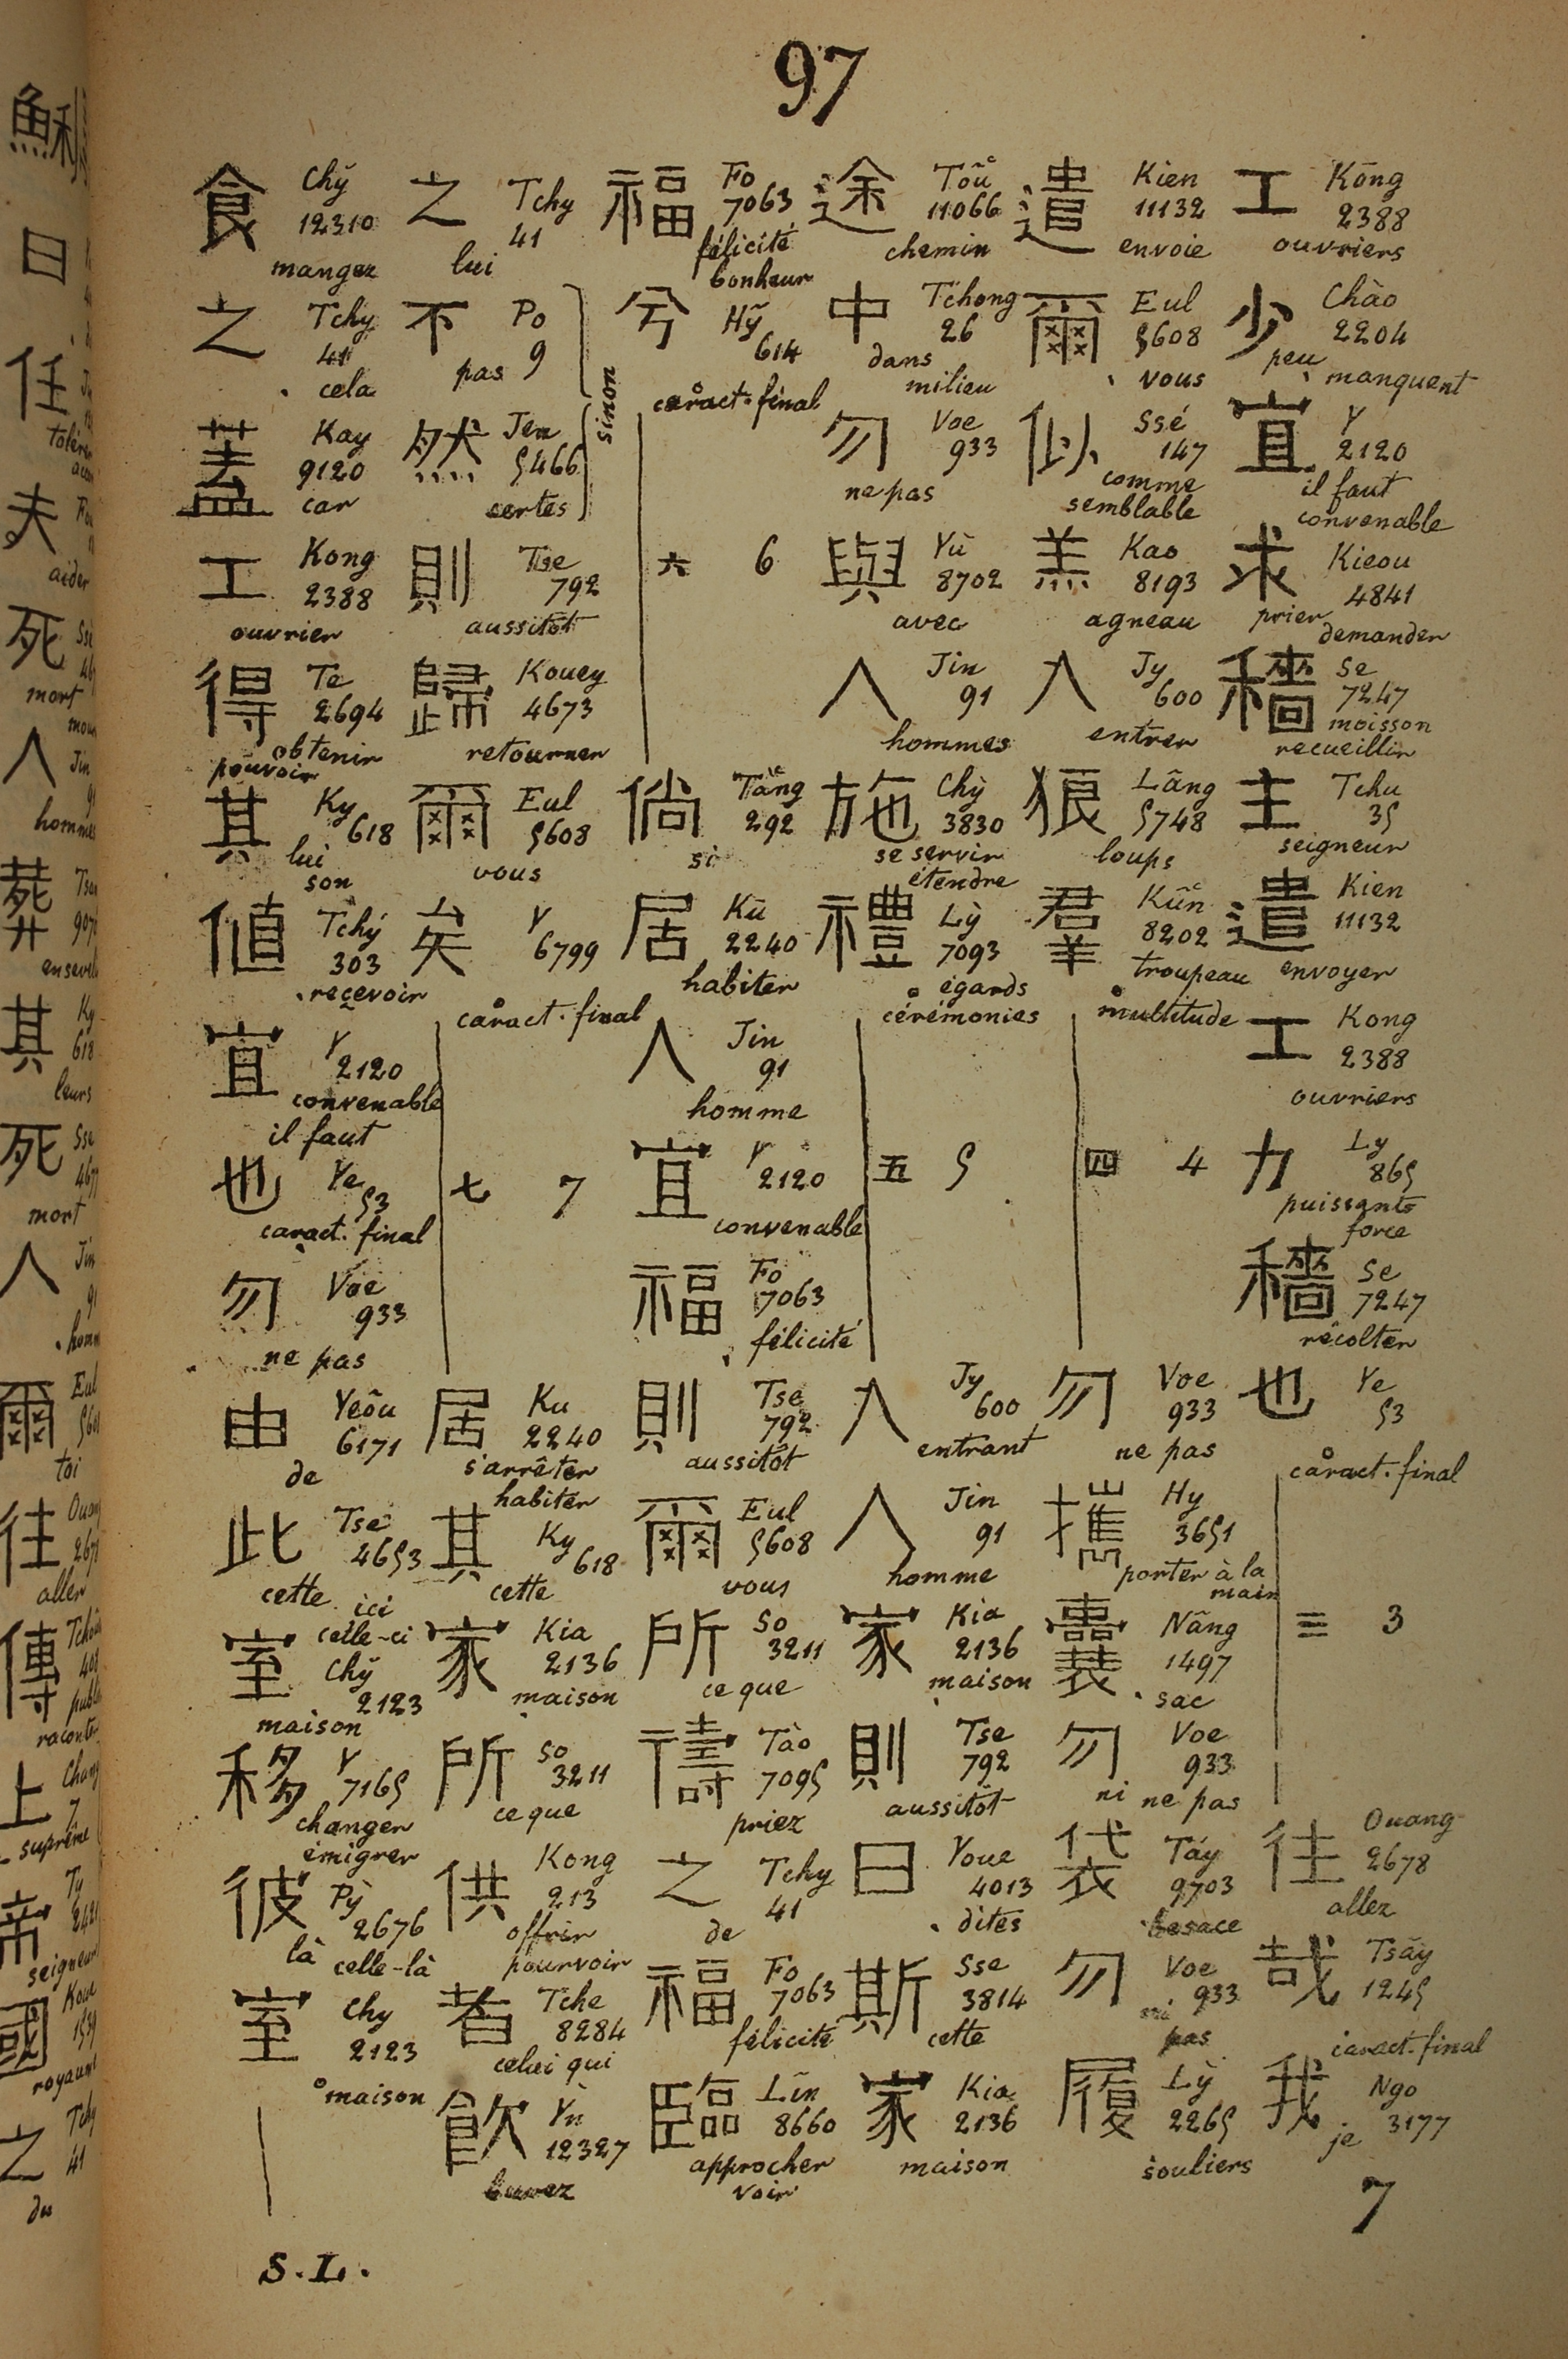 97
工 Kōng 2388 ouvriers
少 Chào 2204 peu manquent
宜 Y 2120 il faut convenable
求 Kieou 4841 prier demander
穡 Se 7247 moisson recueillir
主 Tchu 35 seigneur
遣 Kien 11132 envoyer
工 Kong 2388 ouvriers
力 Ly 865 puissants force
穡 Se 7247 récolter
也 Ye 53 caract. final
三 3
往 Ouang 2678 allez
哉 Tsāy 1245 caract. final
我 Ngo 3177 je
遣 Kien 11132 envoie
爾 Eul 5608 vous
似 Ssé 147 comme semblable
羔 Kao 8193 agneau
入 Jy 600 entrer
狼 Lâng 5748 loups
羣 Kûn 8202 troupeau multitude
四 4
勿 Voe 933 ne pas
攜 Hy 3651 porter à la main
囊 Nâng 1497 sac
勿 Voe 933 ni ne pas
袋 Táy 9703 besace
勿 Voe 933 ni pas
履 Lỳ 2265 souliers
途 Toû 11066 chemin
中 Tchong 26 dans milieu
勿 Voe 933 ne pas
與 Yù 8702 avec
人 Jin 91 hommes
施 Chỳ 3830 se servir étendre
禮 Lỳ 7093 égards cérémonies
五 5
入 Jy 600 entrant
人 Jin 91 homme
家 Kia 2136 maison
則 Tse 792 aussitôt
曰 Youe 4013 dites
斯 Sse 3814 cette
家 Kia 2136 maison
福 Fo 7063 félicité bonheur
兮 Hȳ 614 caract. final
六 6
倘 Tǎng 292 si
居 Kū 2240 habiter
人 Jin 91 homme
宜 Y 2120 convenable
福 Fo 7063 félicité
則 Tse 792 aussitôt
爾 Eul 5608 vous
所 So 3211 ce que
禱 Tào 7095 priez
之 Tchy 41 de
福 Fo 7063 félicité
臨 Lîn 8660 approcher voir
之 Tchy 41 lui
不 Po 9 pas
然 Jen 5466 certes
sinon
則 Tse 792 aussitôt
歸 Kouey 4673 retourner
爾 Eul 5608 vous
矣 Y 6799 caract. final
七 7
居 Ku 2240 s'arrêter habiter
其 Ky 618 cette
家 Kia 2136 maison
所 So 3211 ce que
供 Kong 213 offrir pourvoir
者 Tche 8284 celui qui
飲 Yn 12327 buvez
食 Chy̆ 12310 mangez
之 Tchy 41 cela
蓋 Kay 9120 car
工 Kong 2388 ouvrier
得 Te 2694 obtenir pouvoir
其 Ky 618 lui son
値 Tchý 303 recevoir
宜 Y 2120 convenable il faut
也 Ye 53 caract. final
勿 Voe 933 ne pas
由 Yeôu 6171 de
此 Tse 4653 cette ici celle-ci
室 Chy̆ 2123 maison
移 Y 7165 changer émigrer
彼 Pỳ 2676 là celle-là
室 Chy 2123 maison
7
S.L.
穌
日
任
夫 aider
死 mort
人 Jin hommes
葬
其 Ky 618 leurs
死 mort
人 Jin
爾 Eul toi
往 aller
傳
上 suprême
帝
國
之 Tchy 41 du